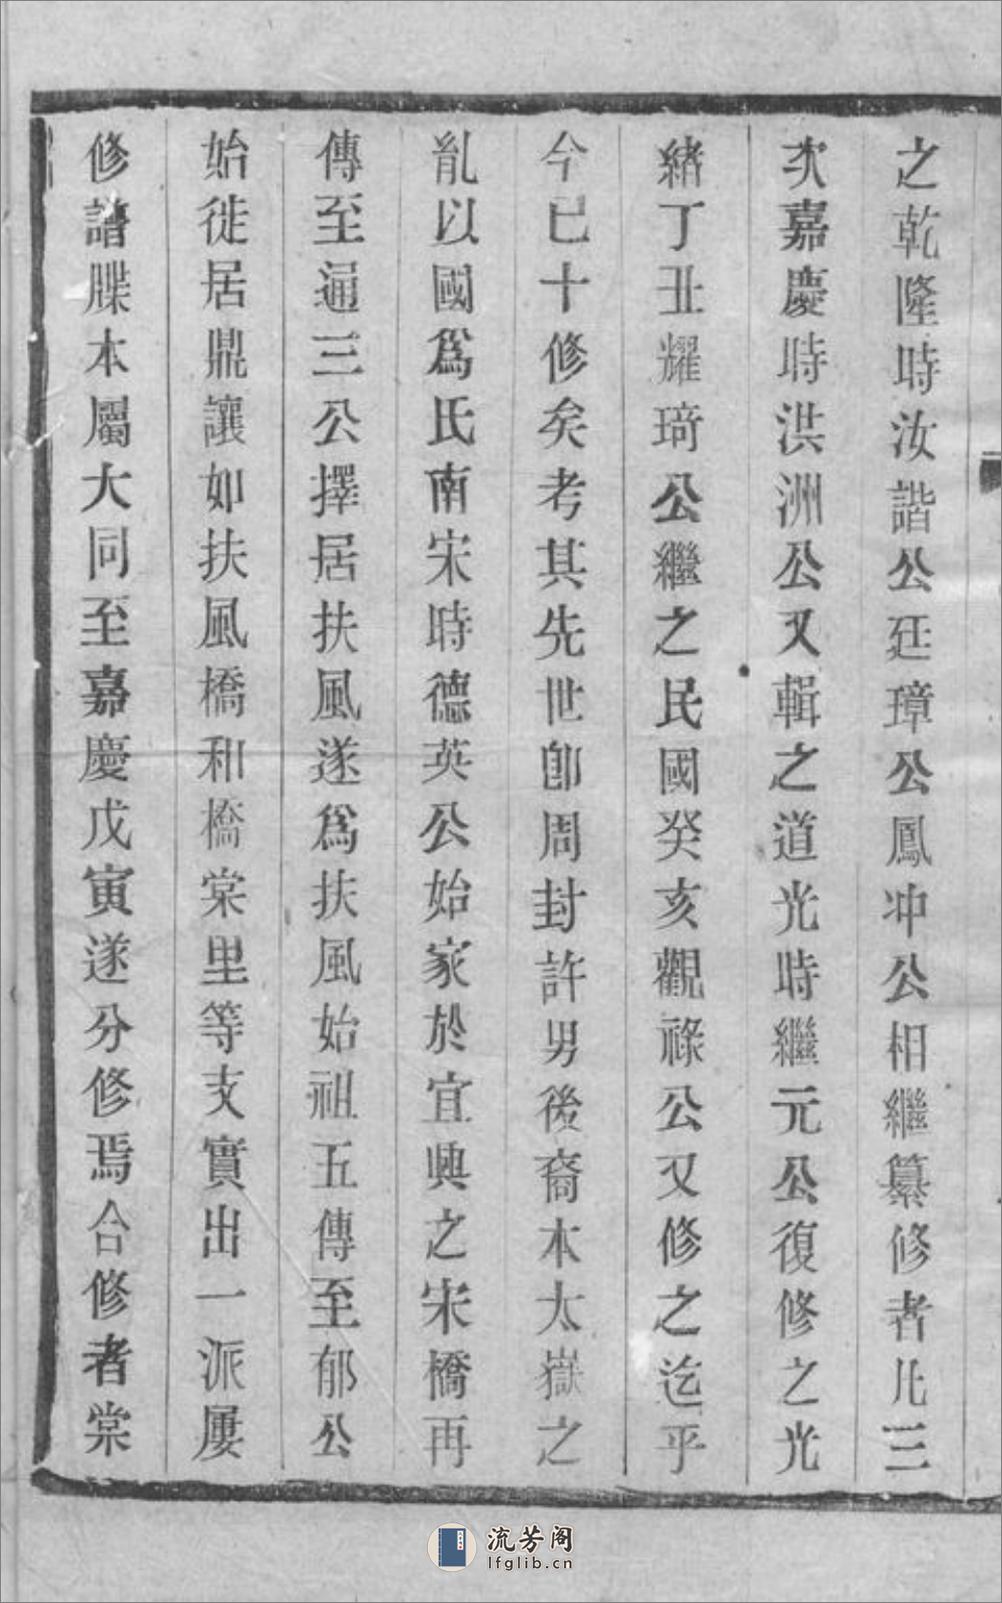 之乾隆時汝諧公廷璋公鳳冲公相繼纂修者凡三
次嘉慶時洪洲公又輯之道光時繼元公復修之光
緒丁丑耀琦公繼之民國癸亥觀祿公又修之迄乎
今已十修矣考其先世卽周封許男後裔本太嶽之
胤以國爲氏南宋時德英公始家於宜興之宋橋再
傳至通三公擇居扶風遂爲扶風始祖五傳至郁公
始徙居鼎讓如扶風橋和橋棠里等支實出一派屢
修譜牒本屬大同至嘉慶戊寅遂分修焉合修者棠
流芳阁
lfglib.cn